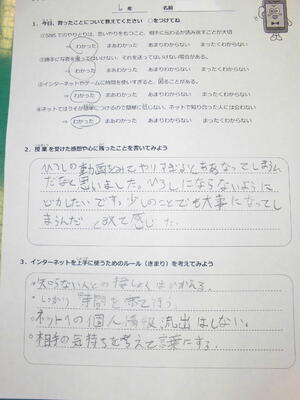 6年 名前
1.今日、習ったことについて教えてください ○をつけてね
①SNSでのやりとりは、思いやりをもつこと、相手に伝わるか読み返すことが大切
わかった まあわかった あまりわからない まったくわからない
②勝手に写真を撮ってはいけない、それを送ってはいけない場合がある。
わかった まあわかった あまりわからない まったくわからない
③インターネットやゲームに時間を使いすぎると、困ることがある。
わかった まあわかった あまりわからない まったくわからない
④ネットではウソが簡単につけるので簡単に信じない、ネットで知り合った人には会わない
わかった まあわかった あまりわからない まったくわからない
2.授業を受けた感想や心に残ったことを書いてみよう
ひろしの動画をみてやりすぎるとああなってしまうん
だなと思いました。ひろしにならないように
どりょくしたいです。少しのことでも大事になってし
まうんだと改めて感じた。
3.インターネットを上手に使うためのルール(きまり)を考えてみよう
・知らない人との接しょくはひかえる。
・しっかり時間を守って使う。
・ネットへの個人情報流出はしない。
・相手の気持ちを考えて言葉にする。